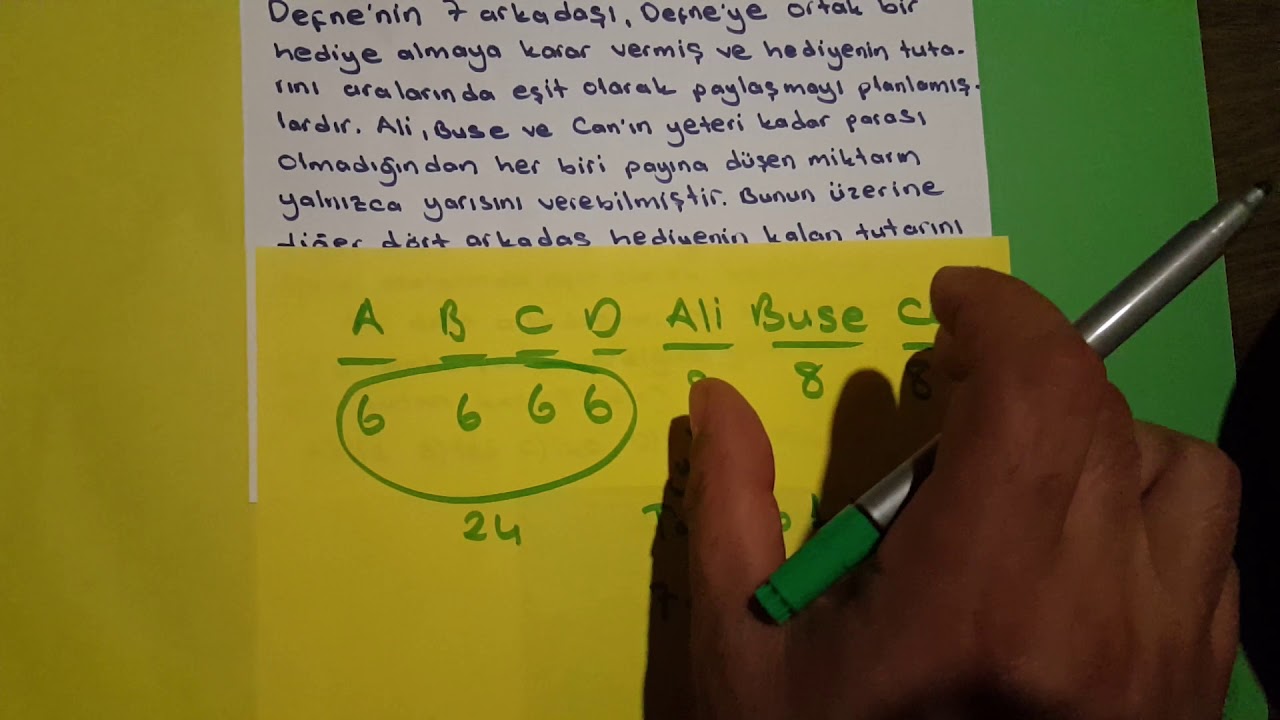 Defne'nin 7 arkadaşı, Defne'ye ortak bir
hediye almaya karar vermiş ve hediyenin tuta-
rını aralarında eşit olarak paylaşmayı planlamış-
lardır. Ali, Buse ve Can'ın yeteri kadar parası
olmadığından her biri payına düşen miktarın
yalnızca yarısını verebilmiştir. Bunun üzerine
diğer dört arkadaş hediyenin kalan tutarını
A B C D Ali Buse
6 6 6 6 8 8
24
7